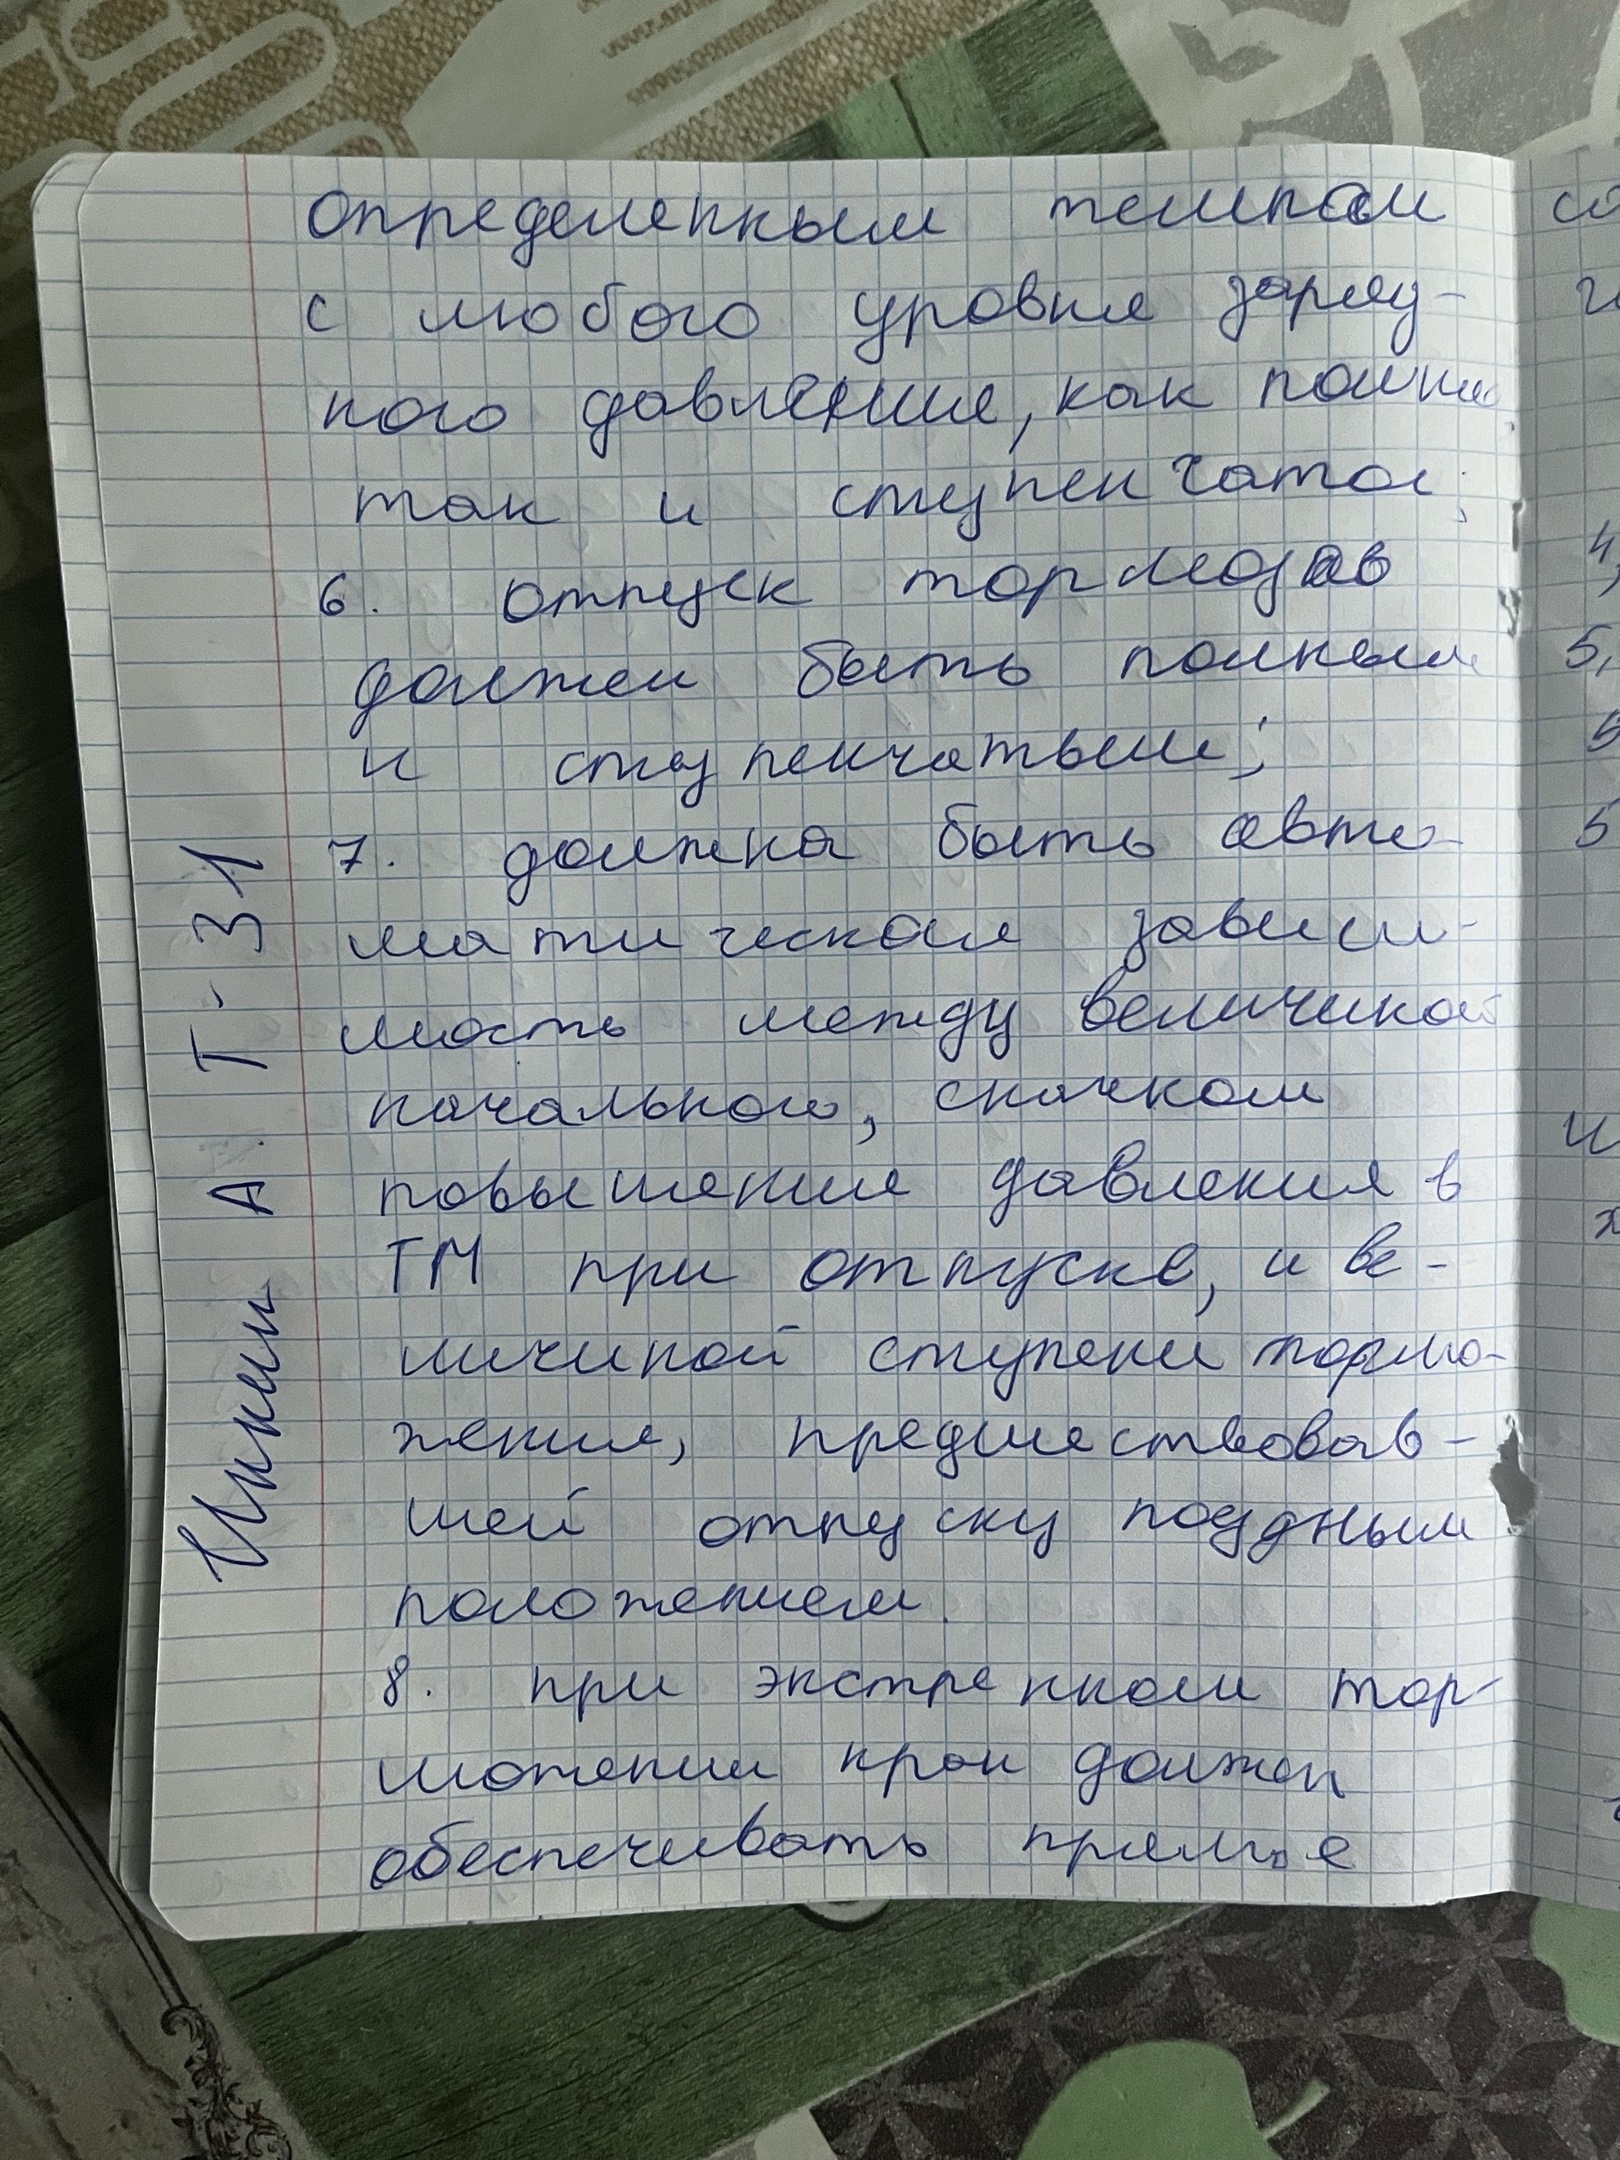 определенным темпом
с любого уровня заряд-
ного давления, как полное
так и ступенчатое;
6. отпуск тормозов
должен быть полным
и ступенчатым;
7. должна быть авто-
матическая зависи-
мость между величиной
начального, скачком
повышение давления в
ТМ при отпуске, и ве-
личиной ступени тормо-
жения, предшествовав-
шей отпуску поездным
положением.
8. при экстренном тор-
можении кран должен
обеспечивать прямое
А. Т-31
4,
5,
5
5